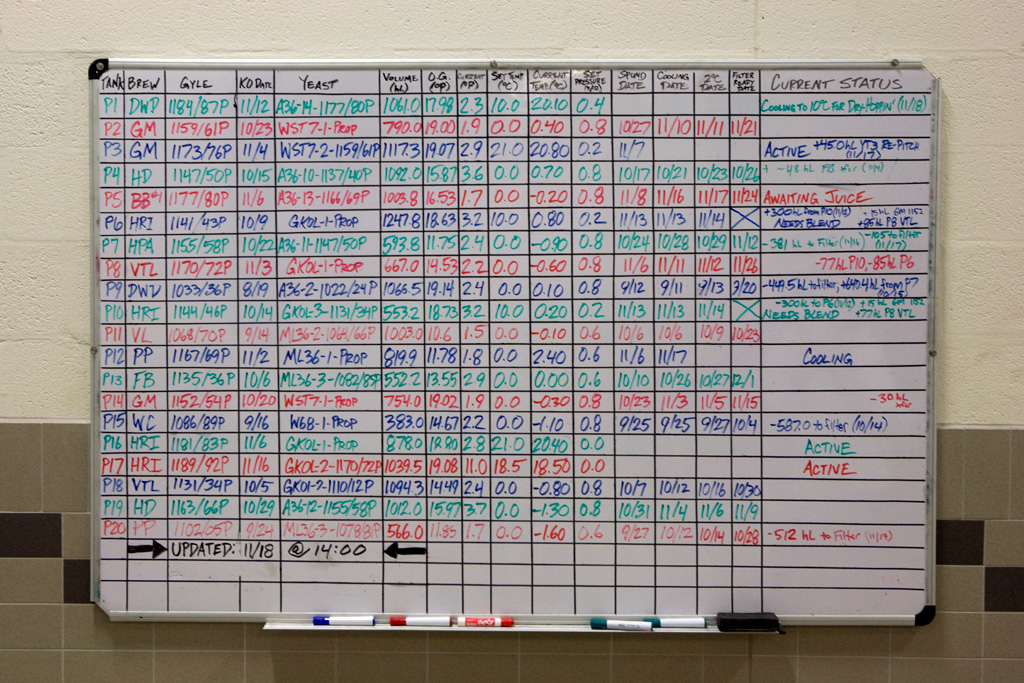 TANK BREW GYLE KO DATE YEAST VOLUME (hL) O.G. (°P) CURRENT (°P) SET TEMP (°C) CURRENT TEMP (°C) SET PRESSURE SPUND DATE COOLING DATE 2°C DATE FILTER READY DATE CURRENT STATUS
P1 DWD 1184/87P 11/12 A36-14-1177/80P 1061.0 17.98 2.3 10.0 20.10 0.4 COOLING TO 10°C FOR DRY-HOPPIN' (11/18)
P2 GM 1159/61P 10/23 WST7-1-PROP 790.0 19.00 1.9 0.0 0.40 0.8 10/27 11/10 11/11 11/21
P3 GM 1173/76P 11/4 WST7-2-1159/61P 1117.3 19.07 2.9 21.0 20.80 0.2 11/7 ACTIVE +45.0 hL YT3 RE-PITCH (11/17)
P4 HD 1147/50P 10/15 A36-10-1137/40P 1092.0 15.87 3.6 0.0 0.70 0.8 10/17 10/21 10/23 10/26
P5 BB#1 1177/80P 11/6 A36-13-1166/69P 1003.8 16.53 1.7 0.0 -0.20 0.8 11/8 11/16 11/17 11/24 AWAITING JUICE
P6 HRI 1141/43P 10/9 GKOL-1-PROP 1247.8 18.63 3.2 10.0 0.80 0.2 11/13 11/13 11/14 +300 hL from P10 (11/12) +15 hL GM 1152 NEEDS BLEND +85hL P8 VTL
P7 HPA 1155/58P 10/22 A36-11-1147/50P 593.8 11.75 2.4 0.0 -0.90 0.8 10/24 10/28 10/29 11/12 -381 hL to Filter (11/16) -105 to Filter (11/17)
P8 VTL 1170/72P 11/3 GKOL-1-PROP 667.0 14.53 2.2 0.0 -0.60 0.8 11/6 11/11 11/12 11/26 -77hL P10, -85hL P6
P9 DWD 1033/36P 8/19 A36-2-1022/24P 1066.5 19.14 2.4 0.0 0.10 0.8 9/12 9/11 9/13 9/20 -449.5 hL to filter, +640.4 hL from P7 (10/15)
P10 HRI 1144/46P 10/14 GKOL-3-1131/34P 553.2 18.73 3.2 10.0 0.20 0.2 11/13 11/13 11/14 -300 hL to P6 (11/12) +15 hL GM 1152 NEEDS BLEND +77hL P8 VTL
P11 VL 1068/70P 9/14 ML36-2-1064/66P 1003.0 10.6 1.5 0.0 -0.10 0.6 10/6 10/6 10/9 10/23
P12 PP 1167/69P 11/2 ML36-1-PROP 819.9 11.78 1.8 0.0 2.40 0.6 11/6 11/17 COOLING
P13 FB 1135/36P 10/6 ML36-3-1082/85P 552.2 13.55 2.9 0.0 0.00 0.6 10/10 10/26 10/27 12/1
P14 GM 1152/54P 10/20 WST7-1-PROP 754.0 19.02 1.9 0.0 -0.30 0.8 10/23 11/3 11/5 11/15 -30 hL
P15 WC 1086/89P 9/16 W68-1-PROP 383.0 14.67 2.2 0.0 -1.10 0.8 9/25 9/25 9/27 10/4 -587.0 to filter (10/14)
P16 HRI 1181/83P 11/6 GKOL-1-PROP 878.0 2.8 21.0 20.40 0.0 ACTIVE
P17 HRI 1189/92P 11/16 GKOL-2-1170/72P 1039.5 19.08 11.0 18.5 18.50 0.0 ACTIVE
P18 VTL 1131/34P 10/5 GKOL-2-1110/12P 1094.3 14.49 2.4 0.0 -0.80 0.8 10/7 10/12 10/16 10/30
P19 HD 1163/66P 10/29 A36-12-1155/58P 1012.0 15.97 3.7 0.0 -1.30 0.8 10/31 11/4 11/6 11/9
P20 PP 1102/05P 9/24 ML36-3-1078/81P 566.0 11.85 1.7 0.0 -1.60 0.6 9/27 10/12 10/14 10/28 -512 hL to Filter
UPDATED: 11/18 @ 14:00